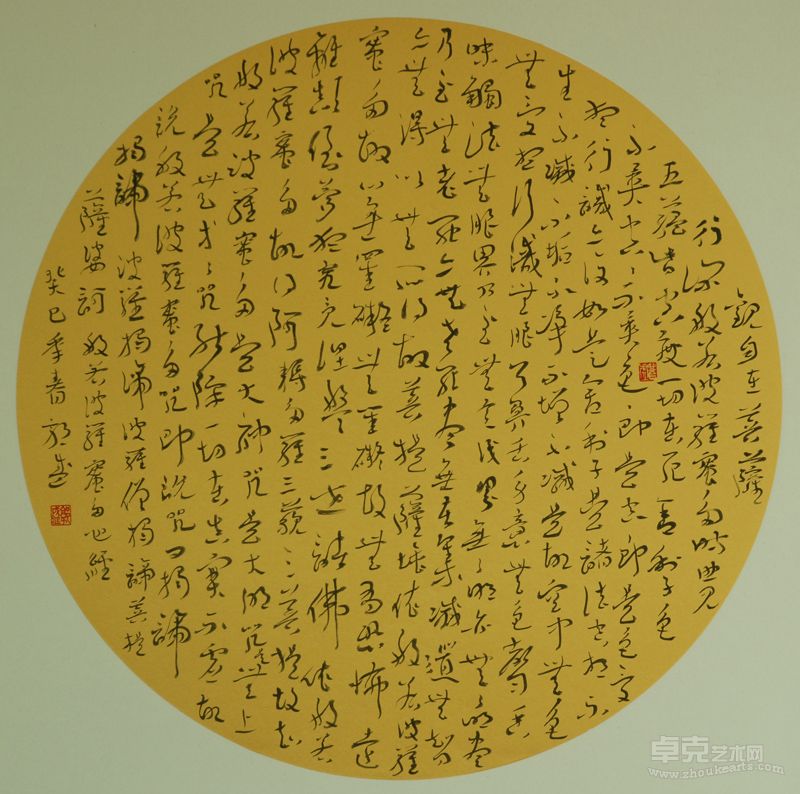 觀自在菩薩
行深般若波羅蜜多時照見
五蘊皆空度一切苦厄舍利子色
不異空々不異色々即是空々即是色受
想行識亦復如是舍利子是諸法空相不
生不滅不垢不淨不增不減是故空中無色
無受想行識無眼耳鼻舌身意無色聲香
味觸法無眼界乃至無意識界無無明亦無無明盡
乃至無老死亦無老死盡無苦集滅道無智
亦無得以無所得故菩提薩埵依般若波羅
蜜多故心無罣礙無罣礙故無有恐怖遠
離顛倒夢想究竟涅槃三世諸佛依般若
波羅蜜多故得阿耨多羅三藐三菩提故知
般若波羅蜜多是大神咒是大明咒是無上
咒是無等々咒能除一切苦真實不虛故
說般若波羅蜜多咒即說咒曰揭諦
揭諦波羅揭諦波羅僧揭諦菩提
薩婆訶 般若波羅蜜多心經
癸巳季春
卓克艺术网
www.zhoukearts.com